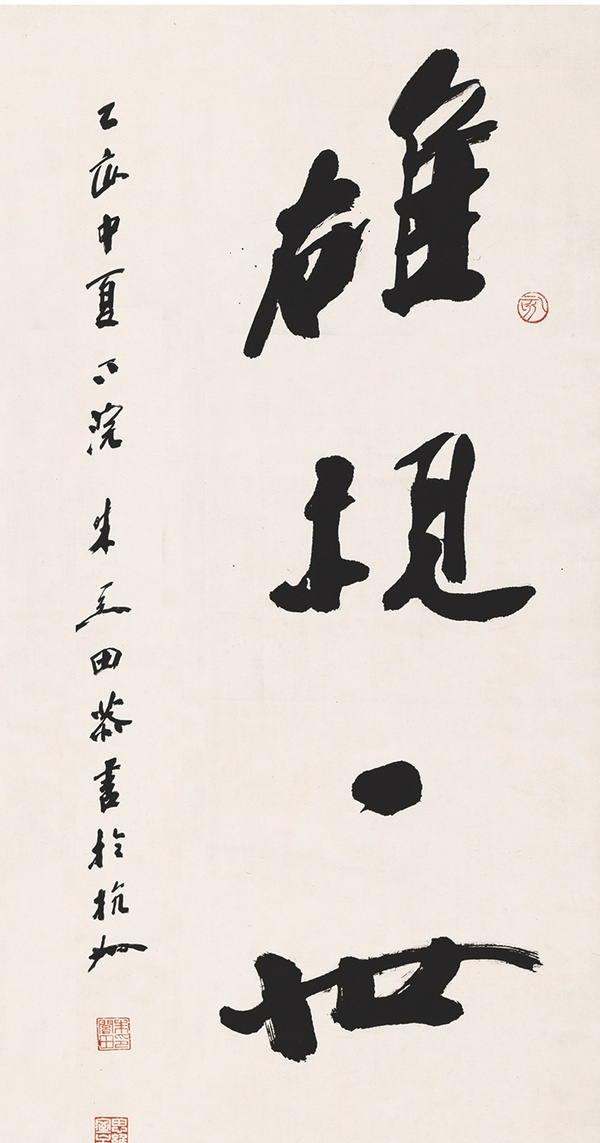 雄視一世
乙亥中夏下浣 朱關田恭書於杭州